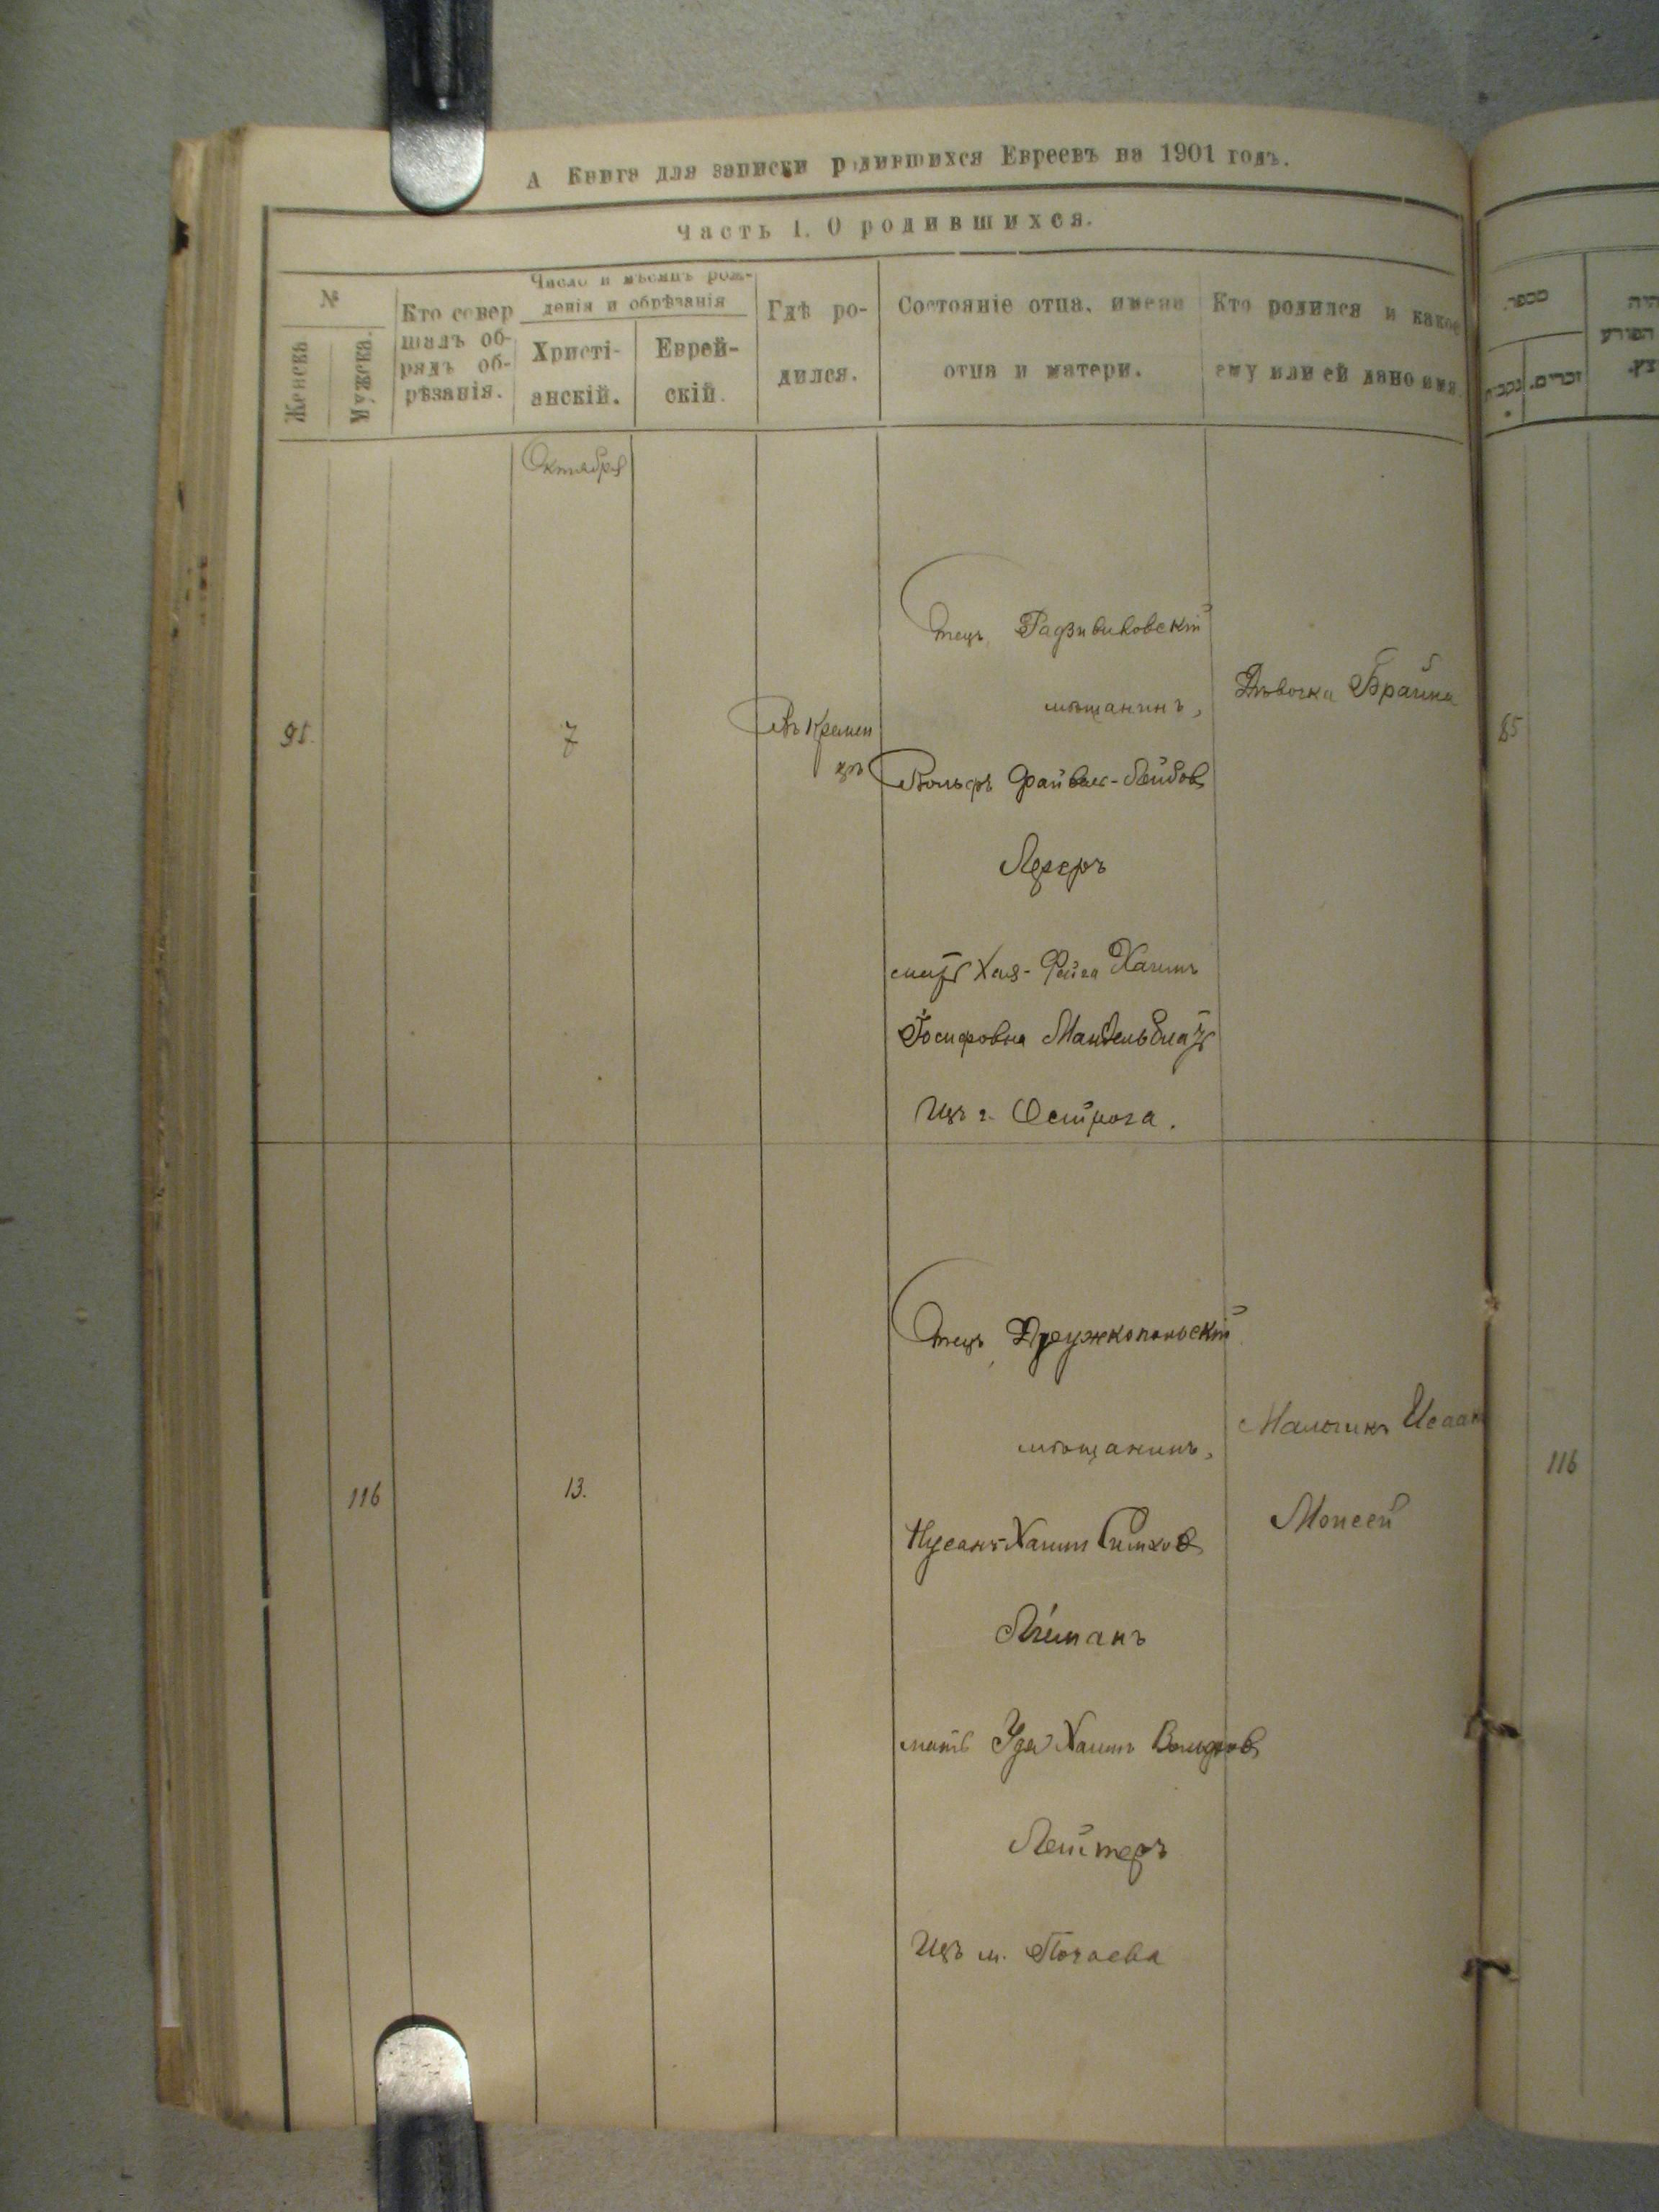 А Книга для записки родившихся Евреевъ на 1901 годъ.
Часть 1. О родившихся.
№
Женска
Мужска.
Кто совер
шалъ об-
рядъ об-
рѣзанія.
Число и мѣсяцъ рож-
денія и обрѣзанія
Христі-
анскій.
Еврей-
скій.
Гдѣ ро-
дился.
Состояніе отца, имена
отца и матери.
Кто родился и какое
ему или ей дано имя.
מספר.
נקבות
זכרים.
Октября
95.
7
Въ Кремен
цѣ
Отецъ Радзивиловскій
мѣщанинъ,
Вольфъ Файвел-Лейбов
Ледеръ
мать Хая-Фейга Хаимъ
Іосифовна Мандельблатъ
Изъ г. Острога.
Дѣвочка Брайна
85
116
13.
Отецъ Дружкопольскій
мѣщанинъ,
Нусанъ-Хаим Симхов
мать Удя Хаимъ
Лейтеръ
Изъ м. Почаева
Мальчикъ Исаак
Моисей
116